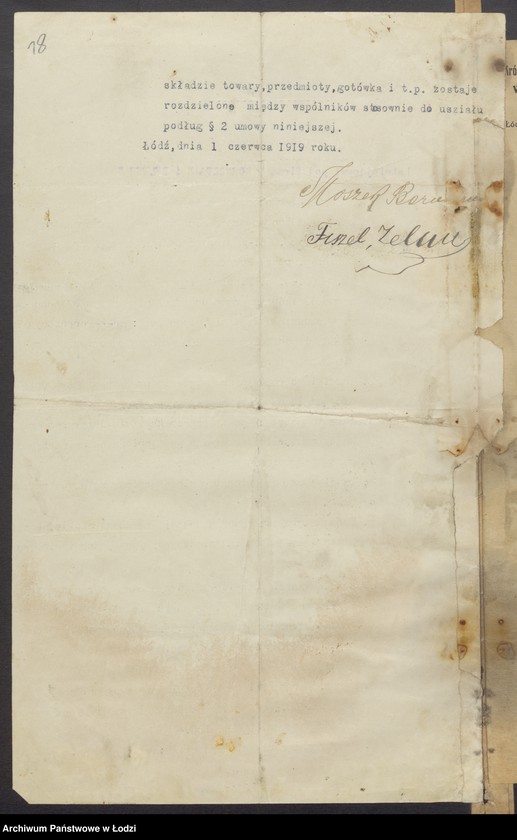 18
składzie towary,przedmioty,gotówka i t.p. zostaje
rozdzielone między wspólników stosownie do usziału
podług § 2 umowy niniejszej.
Łódź,dnia 1 czerwca 1919 roku.
Moszek
Fiszel Zelman
Archiwum Państwowe w Łodzi